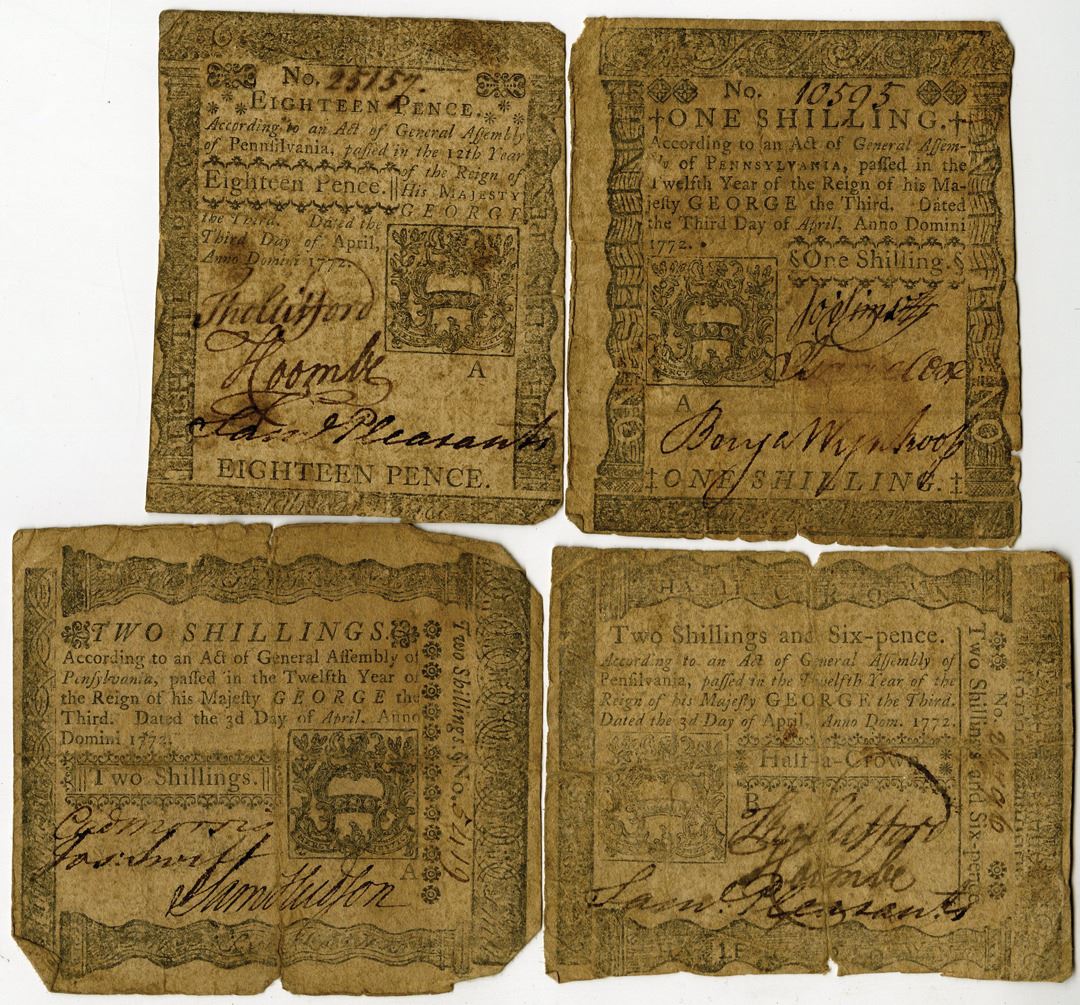 No. 25157.
EIGHTEEN PENCE.
According to an Act of General Assembly
of Pennsilvania, passed in the 12th Year
of the Reign of
Eighteen Pence.
His MAJESTY
GEORGE
the Third. Dated the
Third Day of April,
Anno Domini 1772.
Tho Clifford
TCoombe
Saml Pleasants
A
EIGHTEEN PENCE.
No. 10595
ONE SHILLING.
According to an Act of General Assem-
bly of PENNSYLVANIA, passed in the
Twelfth Year of the Reign of his Ma-
jesty GEORGE the Third. Dated
the Third Day of April, Anno Domini
1772.
§One Shilling.§
A
Benja Wynkoop
‡ONE SHILLING.‡
TWO SHILLINGS.
According to an Act of General Assembly of
Pensylvania, passed in the Twelfth Year of
the Reign of his Majesty GEORGE the
Third. Dated the 3d Day of April. Anno
Domini 1772.
Two Shillings.
Cadmorris
Jos: Swift
Saml Hudson
A
Two Shillings. No. 5419
Two Shillings and Six-pence.
According to an Act of General Assembly of
Pensilvania, passed in the Twelfth Year of the
Reign of his Majesty GEORGE the Third.
Dated the 3d Day of April, Anno Dom. 1772.
Half-a-Crown
B
Tho Clifford
TCoombe
Saml Pleasants
No.
Two Shillings and Six-pence.